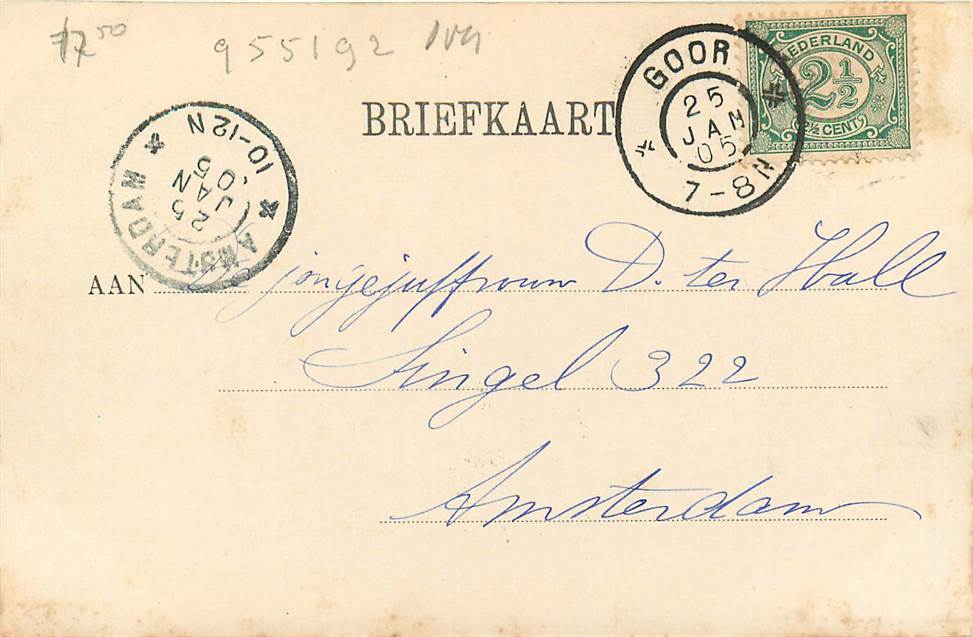 955192
NEDERLAND
2½
2½ CENT
BRIEFKAART
GOOR
25
JAN
05
7-8N
AMSTERDAM
25
JAN
05
10-12N
AAN jongejuffrouw D. ter Hall
Singel 322
Amsterdam